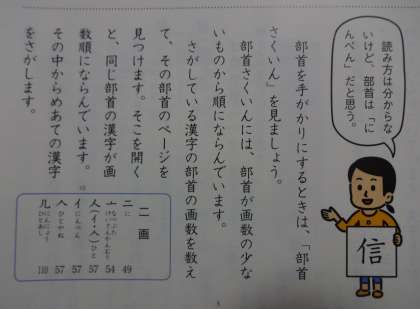 読み方は分からな
いけど、部首は「に
んべん」だと思う。
信
部首を手がかりにするときは、「部首
さくいん」を見ましょう。
部首さくいんには、部首が画数の少な
いものから順にならんでいます。
さがしている漢字の部首の画数を数え
て、その部首のページを
見つけます。そこを開く
と、同じ部首の漢字が画
数順にならんでいます。
その中からめあての漢字
をさがします。
二画
二 に 49
亠 なべぶた けいさんかんむり 54
人(イ・𠆢) ひと 57
イ にんべん 57
𠆢 ひとやね 57
儿 にんにょう ひとあし 110